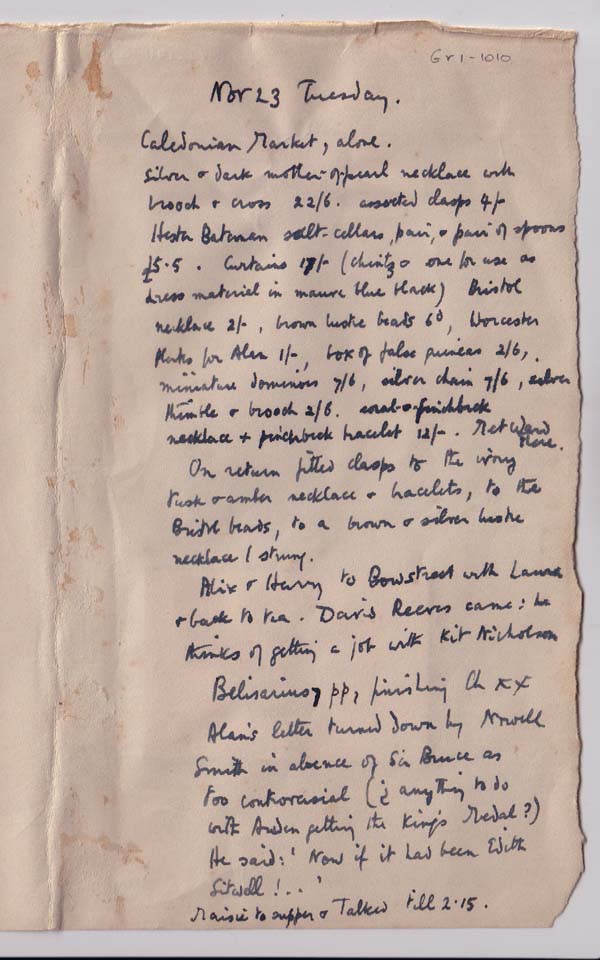 Gr1-1010
Nov 23 Tuesday.
Caledonian Market, alone.
Silver & dark mother-of-pearl necklace with
brooch & cross 22/6. assorted clasps 4/-
Hester Bateman salt-cellars, pair, & pair of spoons
£5.5. Curtains 17/- (chintz & one for use as
dress material in mauve blue black) Bristol
necklace 2/-, brown lustre beads 6d, Worcester
for Alan 1/-, box of false guineas 2/6,
miniature dominoes 7/6, silver chain 7/6, silver
thimble & brooch 2/6. coral-&-pinchbeck
necklace + pinchbeck bracelet 12/-. Met Ward
there.
On return fitted clasps to the ivory
tusk & amber necklace & bracelets, to the
Bristol beads, to a brown & silver lustre
necklace I strung.
Alix & Harry to Bowstreet with Laura
& back to tea. David Reeves came: he
thinks of getting a job with Kit Nicholson
Belisarius 7 pp, finishing Ch XX
Alan's letter turned down by Nowell
Smith in absence of Sir Bruce as
too controversial (¿ anything to do
with Auden getting the King's Medal?)
He said: 'Now if it had been Edith
Sitwell!..'
Maisie to supper & Talked till 2.15.